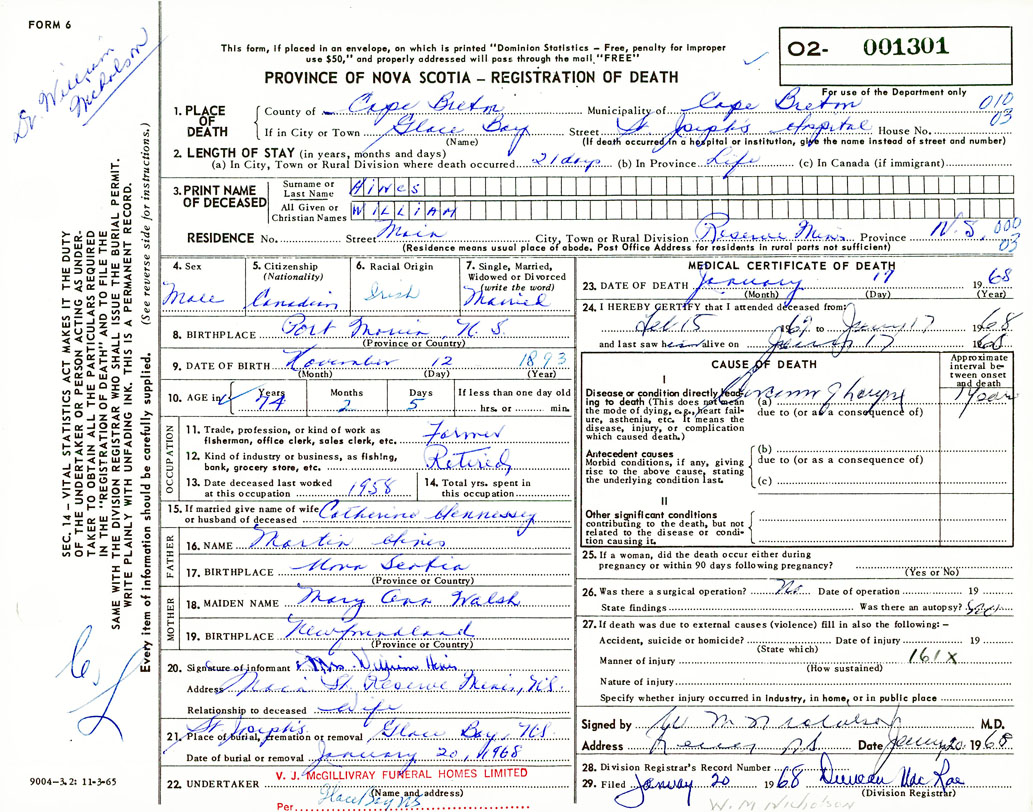 FORM 6
Dr. William Nicholson
This form, if placed in an envelope, on which is printed "Dominion Statistics – Free, penalty for improper
use $50," and properly addressed will pass through the mail "FREE"
PROVINCE OF NOVA SCOTIA – REGISTRATION OF DEATH
O2- 001301
For use of the Department only
010
03
1. PLACE OF DEATH
County of Cape Breton Municipality of Cape Breton
If in City or Town Glace Bay Street St Joseph's Hospital House No.
(Name) (If death occurred in a hospital or institution, give the name instead of street and number)
2. LENGTH OF STAY (in years, months and days)
(a) In City, Town or Rural Division where death occurred 21 days (b) In Province Life (c) In Canada (if immigrant)
3. PRINT NAME OF DECEASED
Surname or Last Name Hines
All Given or Christian Names WILLIAM
RESIDENCE No. Street Main City, Town or Rural Division Reserve Mines Province N.S.
000
03
(Residence means usual place of abode. Post Office Address for residents in rural parts not sufficient)
4. Sex Male
5. Citizenship (Nationality) Canadian
6. Racial Origin Irish
7. Single, Married, Widowed or Divorced (write the word) Married
8. BIRTHPLACE Port Morien, N.S.
(Province or Country)
9. DATE OF BIRTH November 12 1893
(Month) (Day) (Year)
10. AGE in Years 74 Months 2 Days 5 If less than one day old
hrs. or min.
OCCUPATION
11. Trade, profession, or kind of work as
fisherman, office clerk, sales clerk, etc. Farmer
12. Kind of industry or business, as fishing,
bank, grocery store, etc. Retired
13. Date deceased last worked
at this occupation 1958
14. Total yrs. spent in
this occupation
15. If married give name of wife
or husband of deceased Catherine Hennessey
FATHER
16. NAME Martin Hines
17. BIRTHPLACE Nova Scotia
(Province or Country)
MOTHER
18. MAIDEN NAME Mary Ann Walsh
19. BIRTHPLACE Newfoundland
(Province or Country)
20. Signature of informant Mrs. William Hines
Address Main St Reserve Mines, N.S.
Relationship to deceased Wife
21. Place of burial, cremation or removal St Joseph's Glace Bay, N.S.
Date of burial or removal January 20, 1968
22. UNDERTAKER V. J. McGILLIVRAY FUNERAL HOMES LIMITED
(Name and address)
Glace Bay NS
Per
MEDICAL CERTIFICATE OF DEATH
23. DATE OF DEATH January 17 1968
(Month) (Day) (Year)
24. I HEREBY CERTIFY that I attended deceased from:
Feb 15 1967 to 17 1968
and last saw him alive on 17 1968
CAUSE OF DEATH
Approximate interval between onset and death
I
Disease or condition directly leading
to death (This does not mean
the mode of dying, e.g., heart failure,
asthenia, etc. It means the
disease, injury, or complication
which caused death.)
(a)
due to (or as a consequence of)
Antecedent causes
Morbid conditions, if any, giving
rise to the above cause, stating
the underlying condition last.
(b)
due to (or as a consequence of)
(c)
II
Other significant conditions
contributing to the death, but not
related to the disease or condition
causing it.
25. If a woman, did the death occur either during
pregnancy or within 90 days following pregnancy?
(Yes or No)
26. Was there a surgical operation? No Date of operation 19
State findings Was there an autopsy?
27. If death was due to external causes (violence) fill in also the following: –
Accident, suicide or homicide? Date of injury 19
(State which)
Manner of injury 161X
(How sustained)
Nature of injury
Specify whether injury occurred in industry, in home, or in public place
Signed by W M Nicholson M.D.
Address Date 20 1968
28. Division Registrar's Record Number
29. Filed January 20 1968 Duncan MacRae
(Division Registrar)
W. M Nicholson
SEC. 14 – VITAL STATISTICS ACT MAKES IT THE DUTY
OF THE UNDERTAKER OR PERSON ACTING AS UNDER-
TAKER TO OBTAIN ALL THE PARTICULARS REQUIRED
IN THE "REGISTRATION OF DEATH" AND TO FILE THE
SAME WITH THE DIVISION REGISTRAR WHO SHALL ISSUE THE BURIAL PERMIT.
WRITE PLAINLY WITH UNFADING INK. THIS IS A PERMANENT RECORD.
Every item of information should be carefully supplied. (See reverse side for instructions.)
9004–3.2: 11-3-65